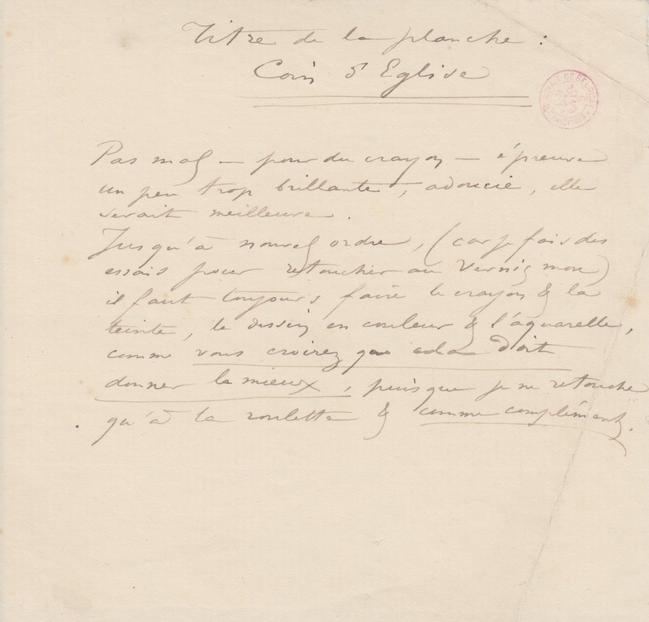 Titre de la planche :
Coin d'Eglise
Pas mal — pour du crayon — épreuve
un peu trop brillante, adoucie, elle
serait meilleure.
Jusqu'à nouvel ordre, (car je fais des
essais pour retoucher au vernis mou)
il faut toujours faire le crayon & la
teinte, le dessin en couleur & l'aquarelle,
comme vous croirez que cela doit
donner le mieux, puisque je ne retouche
qu'à la roulette & comme complément.